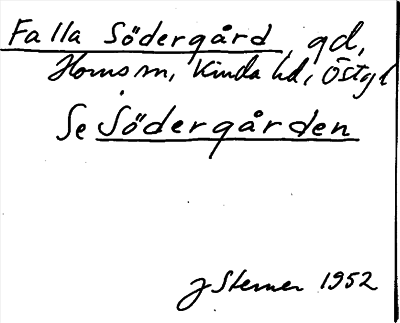 Falla Södergård, gd,
Horns sn, Kinda hd, Östgl
Se Södergården
J Sterner 1952